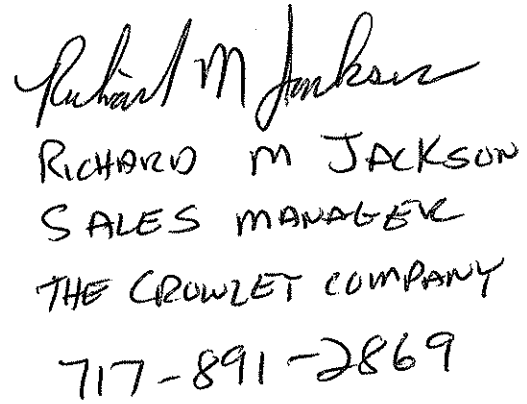 Richard M Jackson
RICHARD M JACKSON
SALES MANAGER
THE CROWLEY COMPANY
717-891-2869